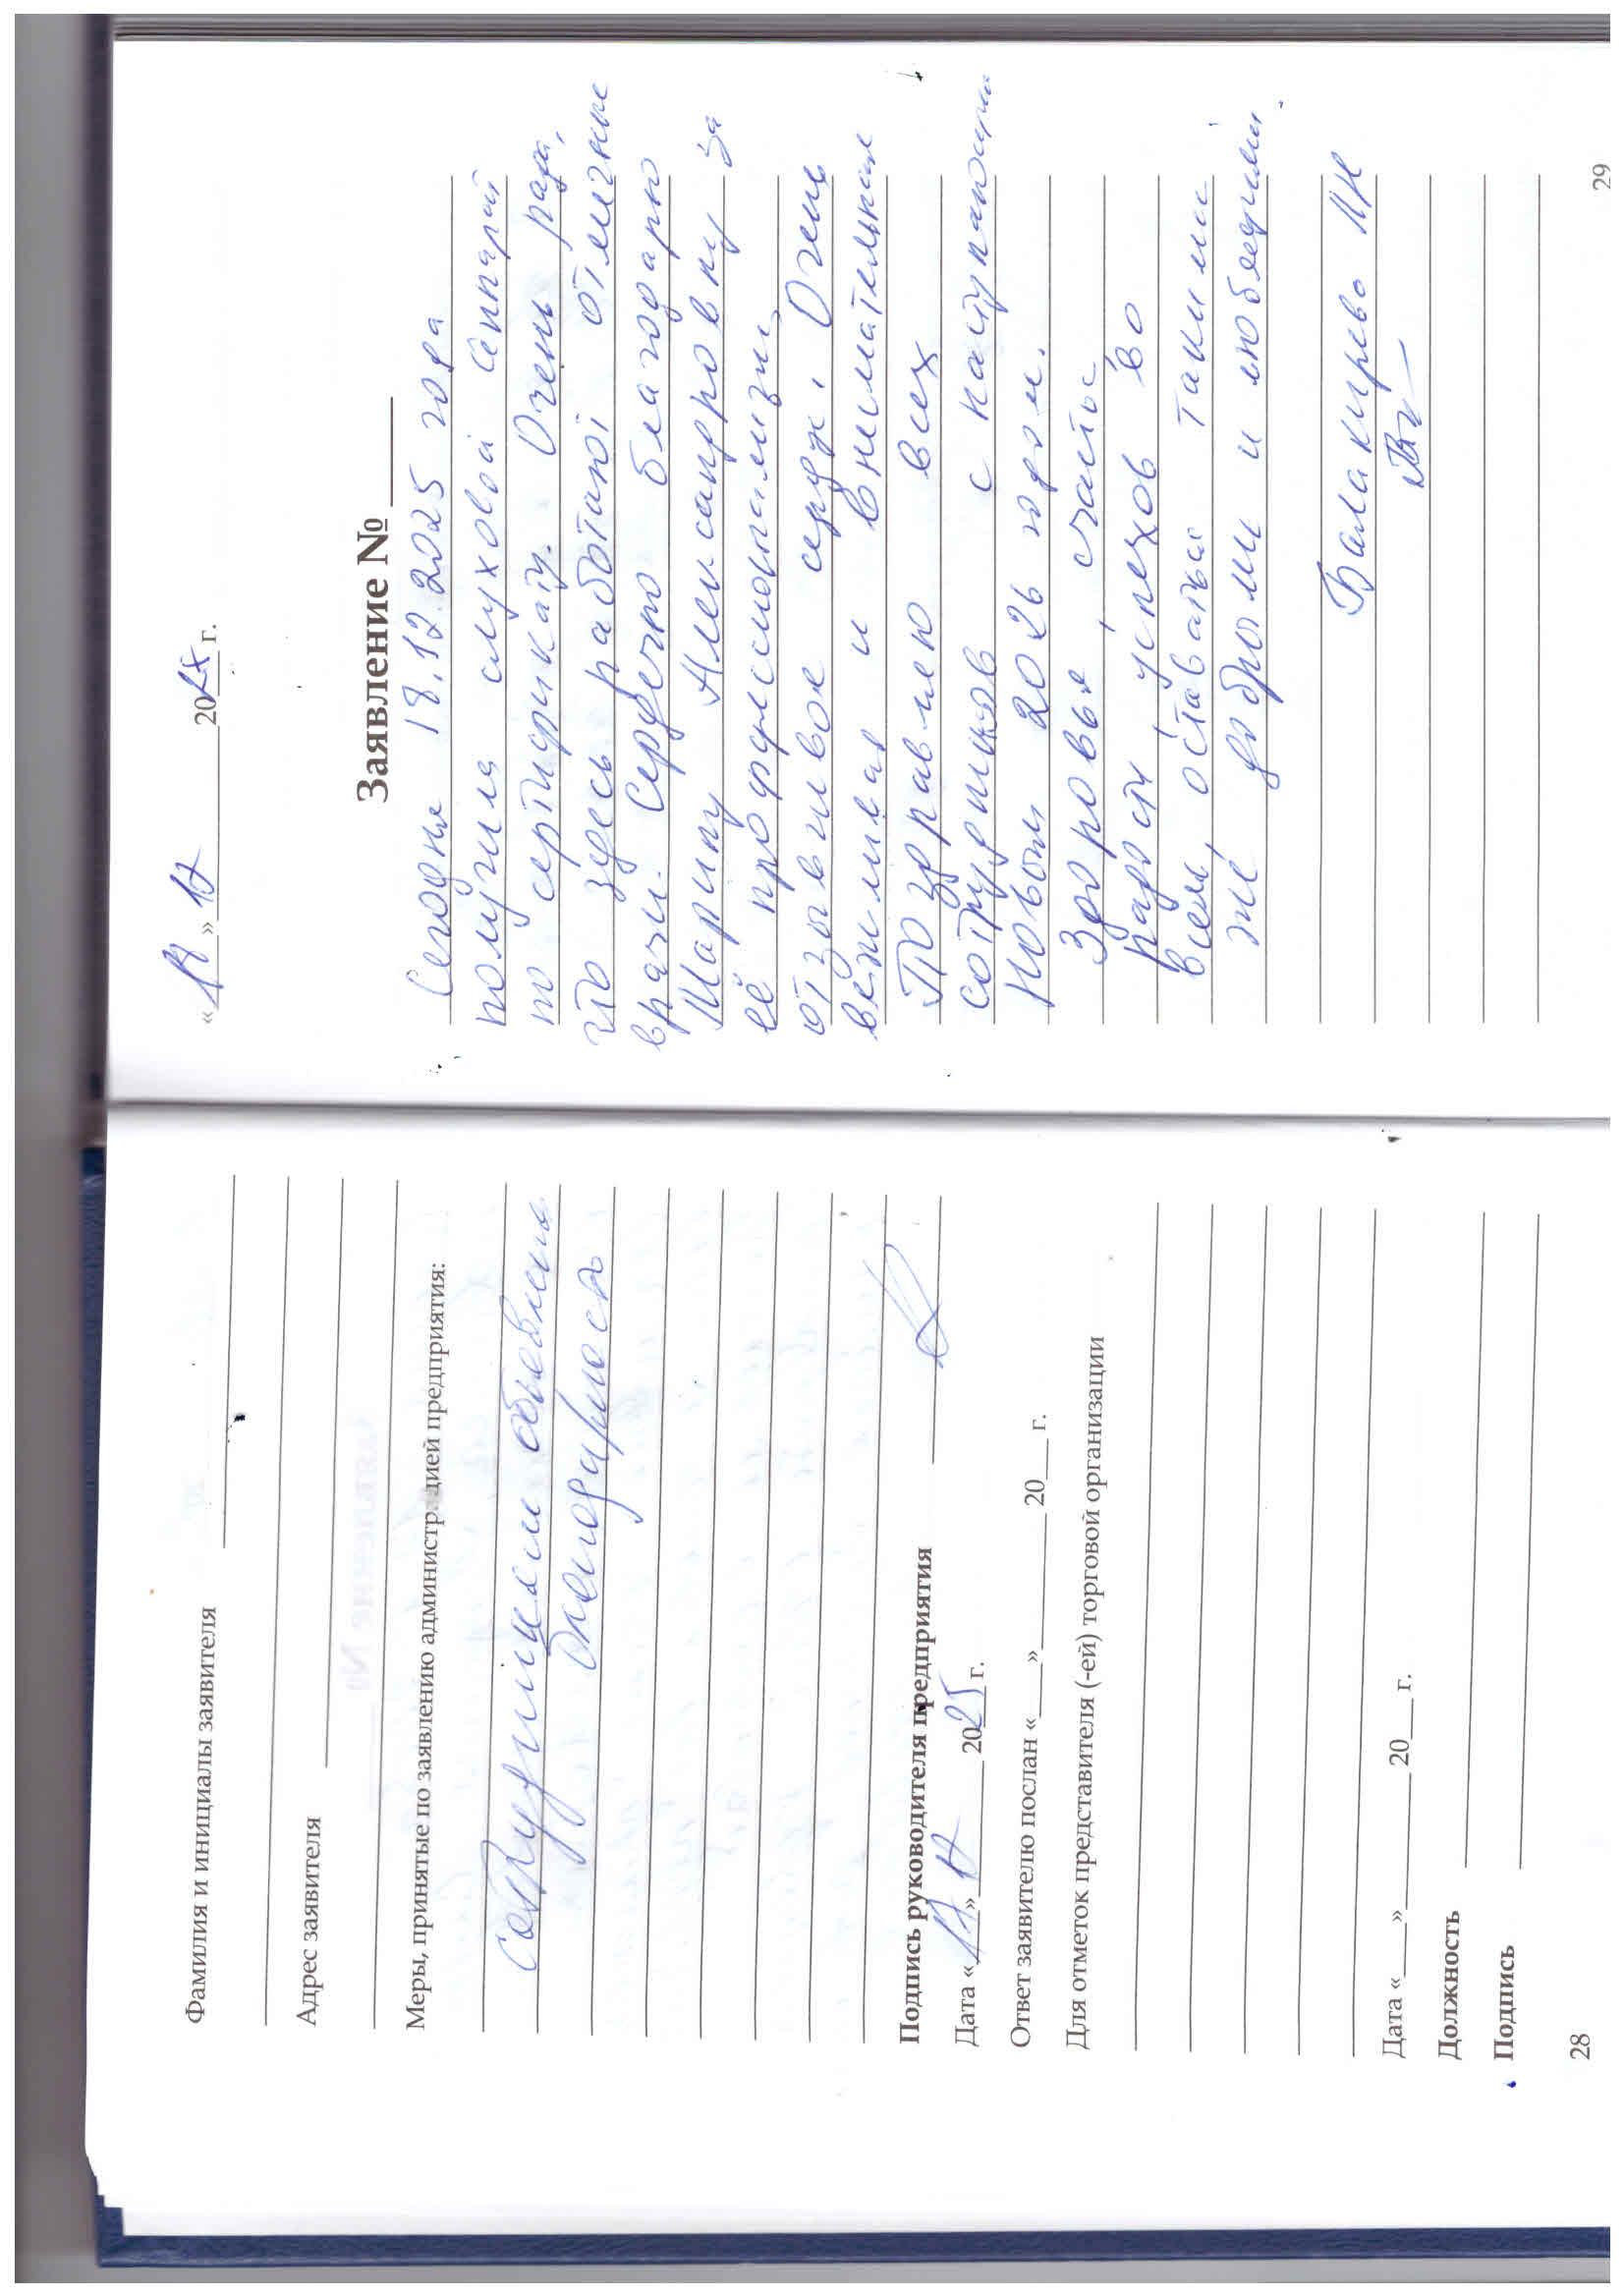 Фамилия и инициалы заявителя
Адрес заявителя
Меры, принятые по заявлению администрацией предприятия:
Сотрудникам объявлена
благодарность
Подпись руководителя предприятия
Дата « » 2025 г.
Ответ заявителю послан « » 20 г.
Для отметок представителя (-ей) торговой организации
Дата « » 20 г.
Должность
Подпись
28
«18» 12 20 г.
Заявление №
Сегодня 18.12.2025 года
получила слуховой аппарат
по сертификату. Очень рада,
что здесь работают отличные
врачи. Сердечно благодарю
Марину Александровну за
её профессионализм,
отзывчивое сердце. Очень
вежливая и внимательная
Поздравляю всех
сотрудников с наступающим
Новым 2026 годом.
Здоровья, счастья
радости, успехов во
всем, оставаться такими
же добрыми и любезными.
Балакирева
29